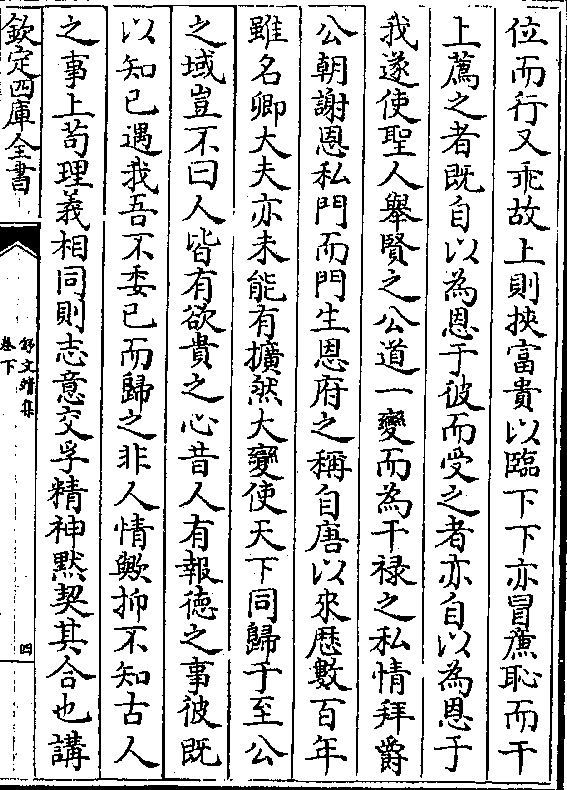 位而行又乖故上則挾富貴以臨下下亦冒㢘恥而干
上薦之者既自以為恩于彼而受之者亦自以為恩于
我遂使聖人舉賢之公道一變而為干禄之私情拜爵
公朝謝恩私門而門生恩府之稱自唐以來歴數百年
雖名卿大夫亦未能有擴然大變使天下同歸于至公
之域豈不曰人皆有欲貴之心昔人有報徳之事彼既
以知已遇我吾不委已而歸之非人情歟抑不知古人
之事上苟理義相同則志意交孚精神黙契其合也講
欽定四庫全書
舒文靖集
卷下
四